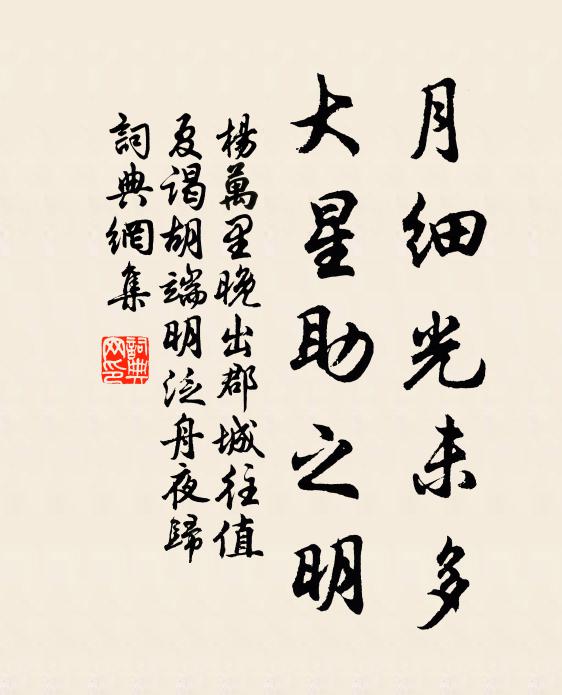 月细光未多
大星助之明
楊萬里晚出郡城往值
夏谒胡端明泛舟夜歸
詞典網集
詞典
网印